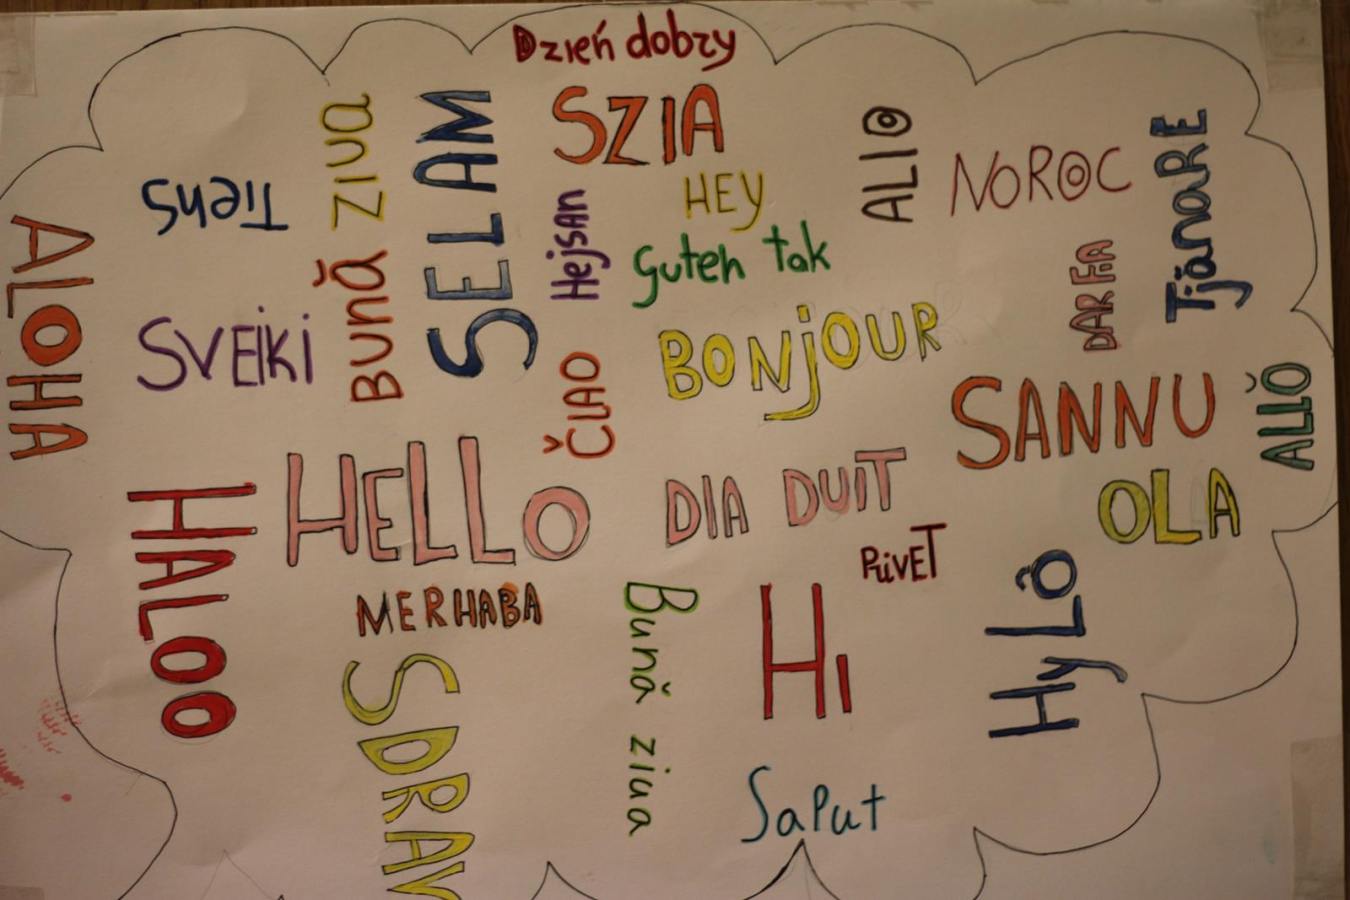 Dzień dobry
SZIA
SELAM
BUNĂ ZIUA
Tiens
ALOHA
SVEIKI
Hejsan
HEY
Guten tak
ALIO
NOROC
TjänaRE
DARFA
BONjOUR
ČIAO
SANNU
ALLÒ
OLA
HELLO
HALOO
DIA DUIT
PRIVET
HyLô
MERHABA
SDRAV
Bună ziua
HI
SaPut